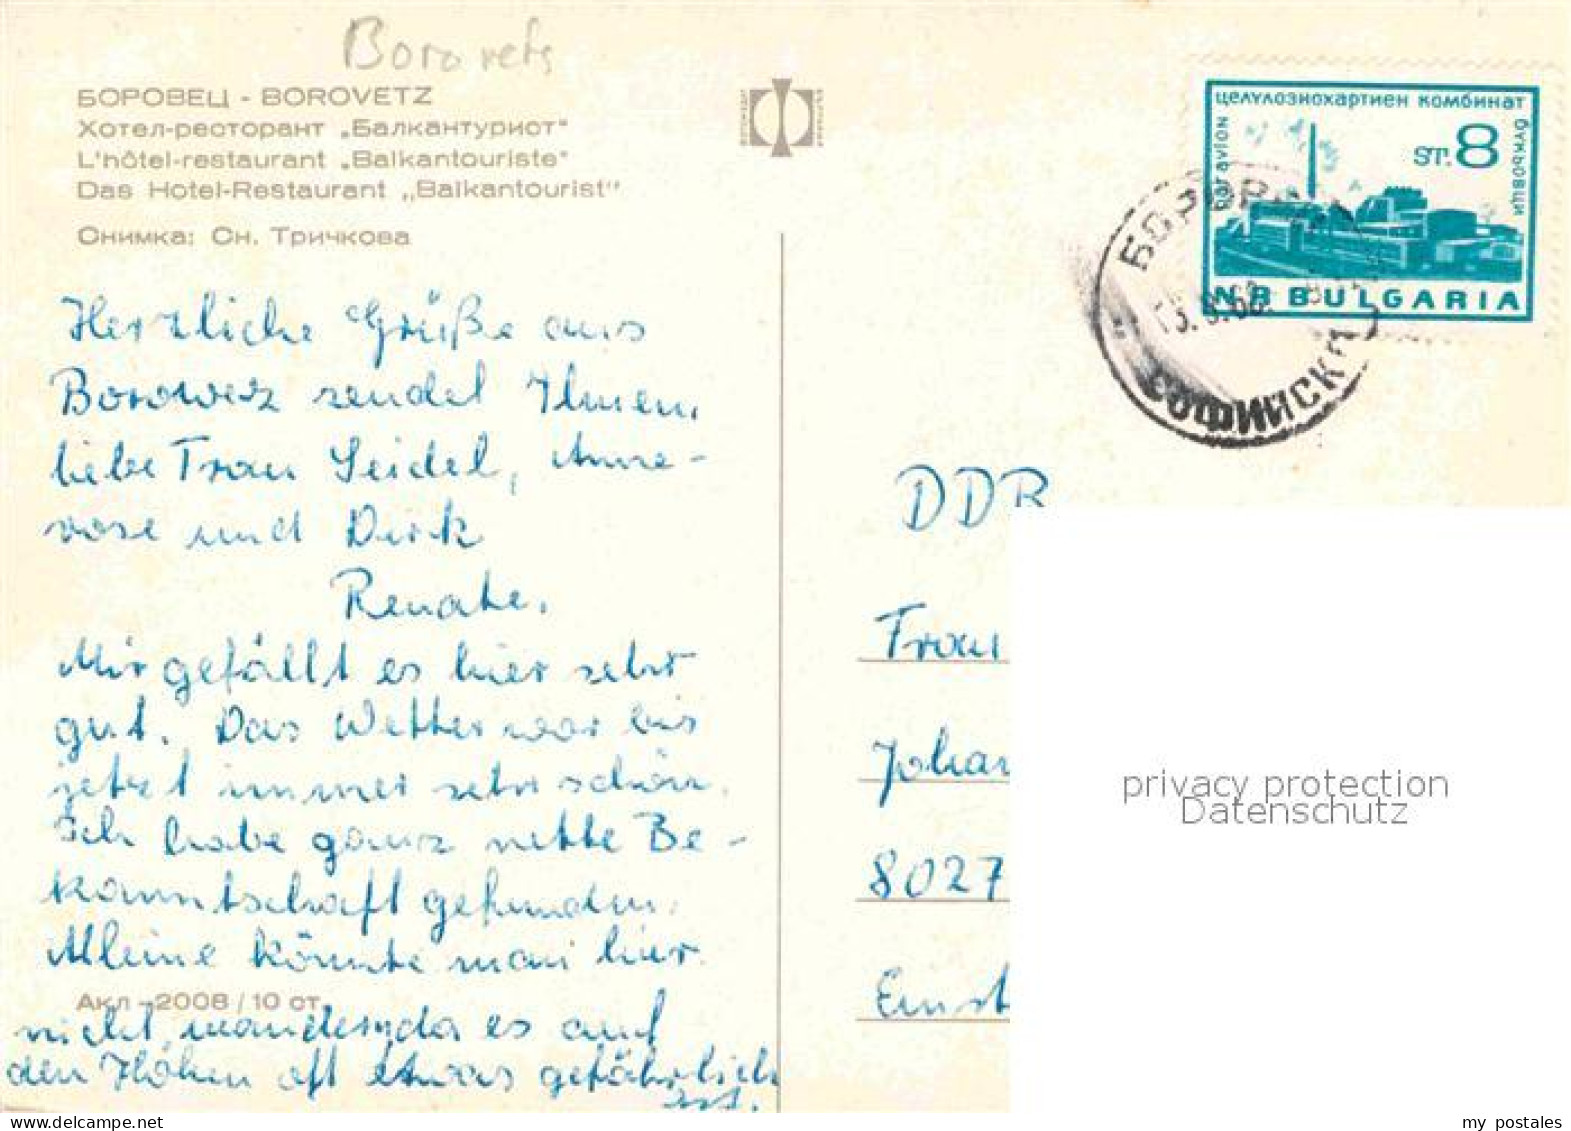 Borovets
БОРОВЕЦ - BOROVETZ
Хотел-ресторант „Балкантурист"
L'hôtel-restaurant „Balkantouriste"
Das Hotel-Restaurant „Balkantourist"
Снимка: Сн. Тричкова
Herzliche Grüße aus
Borowez sendet Ihnen,
liebe Frau Seidel, Anne-
rose und Dirk
Renate.
Mir gefällt es hier sehr
gut. Das Wetter war bis
jetzt immer sehr schön.
Ich habe ganz nette Be-
kanntschaft gefunden.
Alleine könnte man hier
Акл - 2008 / 10 ст.
nicht wandern, da es auf
den Höhen oft etwas gefährlich
ist.
целулознохартиен комбинат
par avion
ST. 8
букьовци
NR BULGARIA
БОРОВЕЦ
СОФИЙСКИ
DDR
Frau
Johan
8027
Einst
privacy protection
Datenschutz
my postales